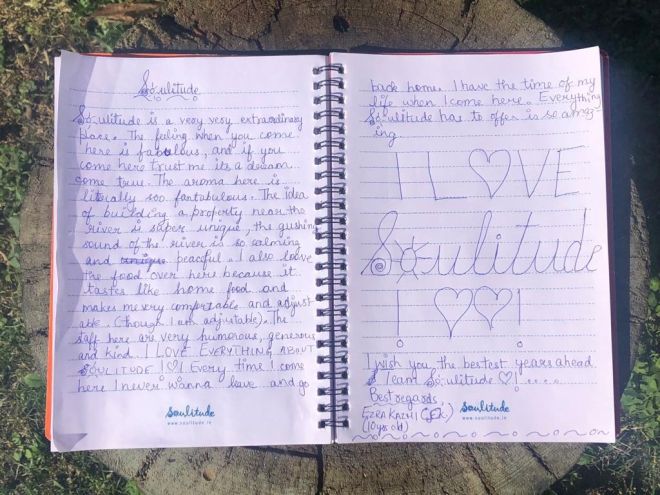 Soulitude
Soulitude is a very very extraordinary
place. The feling when you come
here is fabulous, and if you
come here trust me its a dream
come true. The aroma here is
litually soo fantabulous. The idea
of building a property near the
river is super unique, the gushing
sound of the river is so calming
and unique peaceful. I also loove
the food over here because it
tastes like home food and
makes me very comfortable and adjust
able. (though I am adjustable). The
staff here are very humorous, generous
and kind. I LOVE EVERYTHING ABOUT
SOULITUDE!♡! Every time I come
here I never wanna leave and go
Soulitude
www.soulitude.in
back home. I have the time of my
life when I come here. Everything
Soulitude has to offer is so amaz-
ing
I L♡VE
Soulitude
! ♡♡!
I wish you, the bestest years ahead
Team Soulitude ♡! .....
Best regards,
EZRA KAZVI
(10 yrs old)
Soulitude
www.soulitude.in